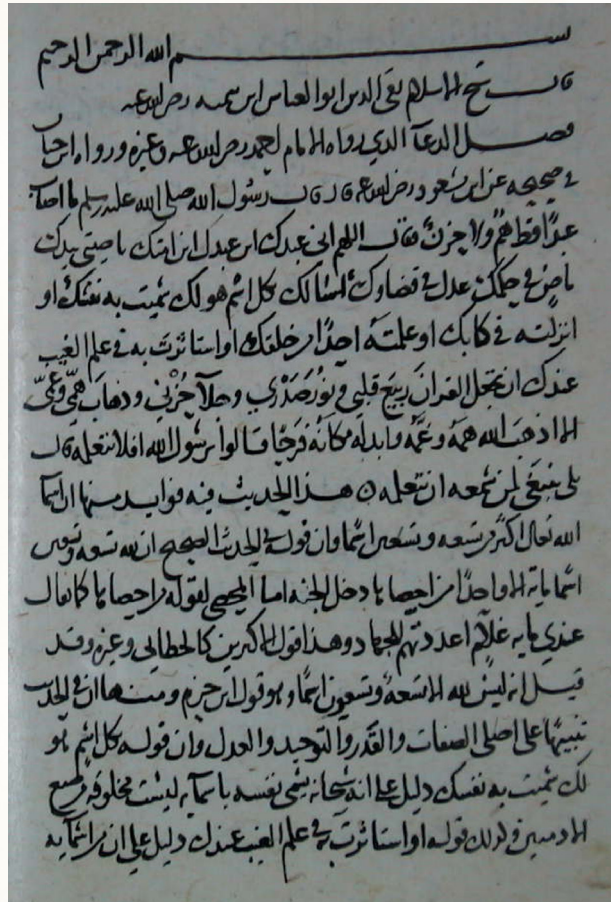 بسم الله الرحمن الرحيم
قال شيخ الاسلام تقي الدين ابو العباس ابن تيميه رضي الله عنه
فصل الدعآ الذي رواه الامام احمد رضي الله عنه وغيره ورواه ابن حبان
في صحيحه عن ابن مسعود رضي الله عنه قال قال رسول الله صلى الله عليه وسلم ما اصاب
عبدًا قط همٌ ولا حزنٌ فقال اللهم اني عبدك ابن عبدك ابن امتك ناصيتي بيدك
ماضٍ في حكمك عدل في قضاوك اسٔالك بكل اسم هو لك سميت به نفسك او
انزلته في كتابك او علمته احدًا من خلقك او استاثرت به في علم الغيب
عندك ان تجعل القران ربيع قلبي ونور صدري وجلآ حزني وذهاب همّي وغمّي
الا اذهب الله همه وغمّه وابدله مكانه فرجًا قالوا يرسول الله افلا نتعلمه قال
بلى ينبغي لمن سمعه ان يتعلمه ۞ هذا الحديث فيه فوايد منها ان اسمآ
الله تعالى اكثر من تسعه وتسعين اسمًا وان قوله في الحديث الصحيح ان لله تسعه وتسعين
اسمًا ماية الا واحدًا من احصاها دخل الجنه امآ المحصي لقوله من احصاها كما يقال
عندي مايه غلام اعددتهم للجهاد وهذا قول الاكثرين كالخطابي وغيره وقد
قيل انه ليس لله الا تسعةٌ وتسعون اسمًا وهو قول ابن حزم ومنها ان في الحديث
تنبيهًا على اصلي الصفات والقدر والتوحيد والعدل وان قوله كل اسم هو
لك سميت به نفسك دليل على انه سبحانه يسمي نفسه باسمآيه ليست مخلوقه من صنع
الادميين وكذلك قوله او استاثرت به في علم الغيب عندك دليل على ان من اسمآيه